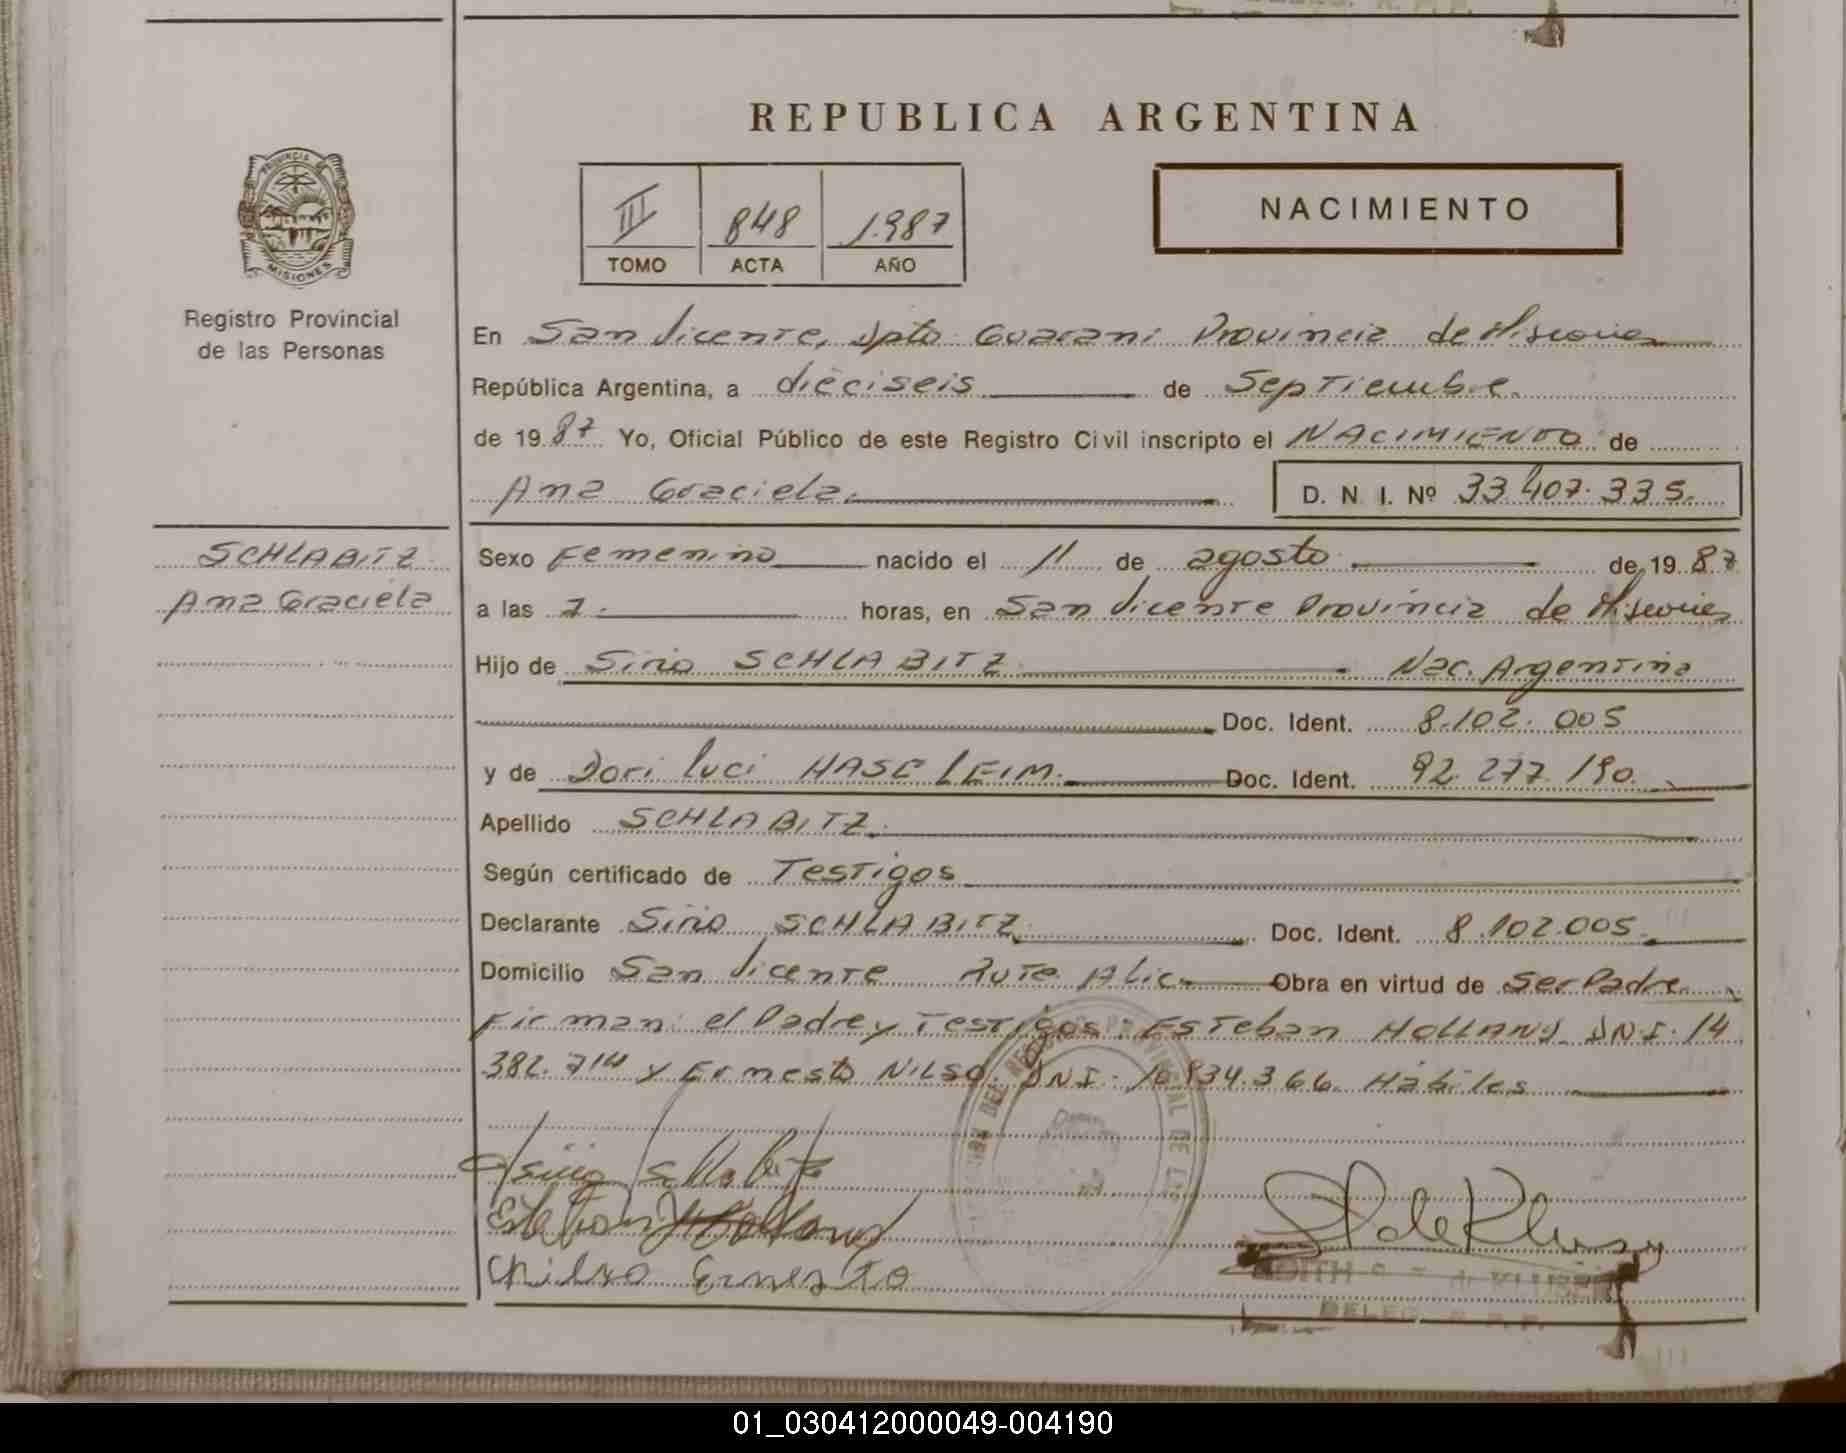 REPUBLICA ARGENTINA
PROVINCIA DE
MISIONES
Registro Provincial
de las Personas
III 848 1.987
TOMO ACTA AÑO
NACIMIENTO
En San Vicente, Dpto Guarani Provincia de Misiones
República Argentina, a dieciseis de Septiembre.
de 19 87 Yo, Oficial Público de este Registro Civil inscripto el NACIMIENTO de
Ana Graciela. D. N. I. Nº 33.407.335.
SCHLABITZ
Ana Graciela
Sexo Femenino nacido el 11 de agosto de 19 87
a las 7. horas, en San Vicente Provincia de Misiones
Hijo de Sirio SCHLABITZ Nac. Argentina
Doc. Ident. 8.102.005
y de Dori Luci HASELEIM. Doc. Ident. 92.277.190.
Apellido SCHLABITZ.
Según certificado de Testigos
Declarante Sirio SCHLABITZ Doc. Ident. 8.102.005.
Domicilio San Vicente Rute Alic. Obra en virtud de Ser Padre
Firman: el Padre y Testigos: Esteban HOLLAND DNI: 14
382.714 y Ernesto NILSO. DNI: 10.834.366 Hábiles
Sirio Schlabitz
Esteban Holland
Chilzo Ernesto
EDITH de KLUSE
DELEG. R. P. P.
01_030412000049-004190